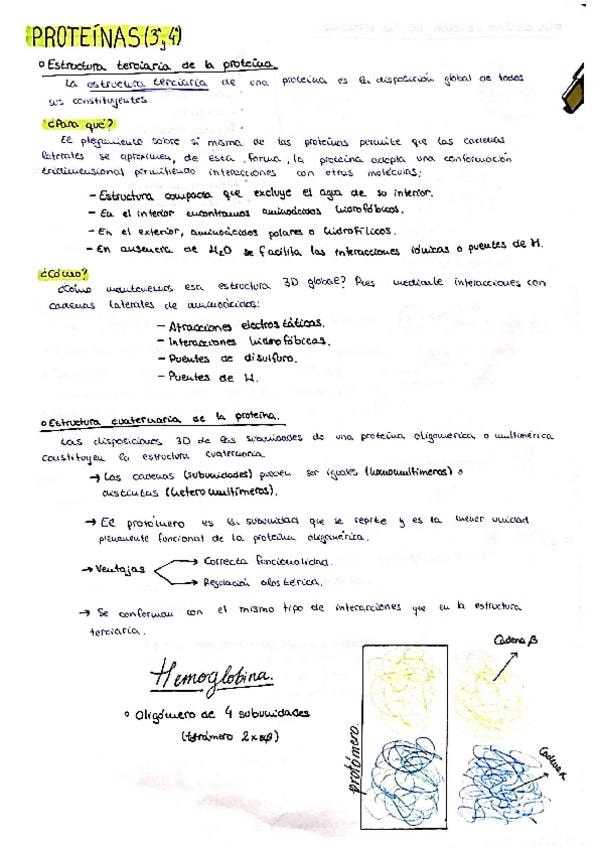 PROTEÍNAS (3ª y 4ª)
Estructura terciaria de la proteína.
La estructura terciaria de una proteína es la disposición global de todos
sus constituyentes.
¿Para qué?
El plegamiento sobre sí misma de las proteínas permite que las cadenas
laterales se aproximen, de esta forma, la proteína adopta una conformación
tridimensional permitiendo interacciones con otras moléculas:
- Estructura compacta que excluye el agua de su interior.
- En el interior encontramos aminoácidos hidrofóbicos.
- En el exterior, aminoácidos polares o hidrofílicos.
- En ausencia de H₂O se facilita las interacciones iónicas o puentes de H.
¿Cómo?
¿Cómo mantenemos esa estructura 3D global? Pues mediante interacciones con
cadenas laterales de aminoácidos:
- Atracciones electrostáticas.
- Interacciones hidrofóbicas.
- Puentes de disulfuro.
- Puentes de H.
Estructura cuaternaria de la proteína.
Las disposiciones 3D de las subunidades de una proteína oligomérica o multimérica
constituyen la estructura cuaternaria.
→ Las cadenas (subunidades) pueden ser iguales (homomultímeros) o
distintas (heteromultímeros).
→ El protómero es la subunidad que se repite y es la menor unidad
plenamente funcional de la proteína oligomérica.
→ Ventajas
→ Correcta funcionalidad.
→ Regulación alostérica.
→ Se conforman con el mismo tipo de interacciones que en la estructura
terciaria.
Hemoglobina.
Oligómero de 4 subunidades
(tetrámero 2xαβ)
protómero.
Cadena β
Cadena α